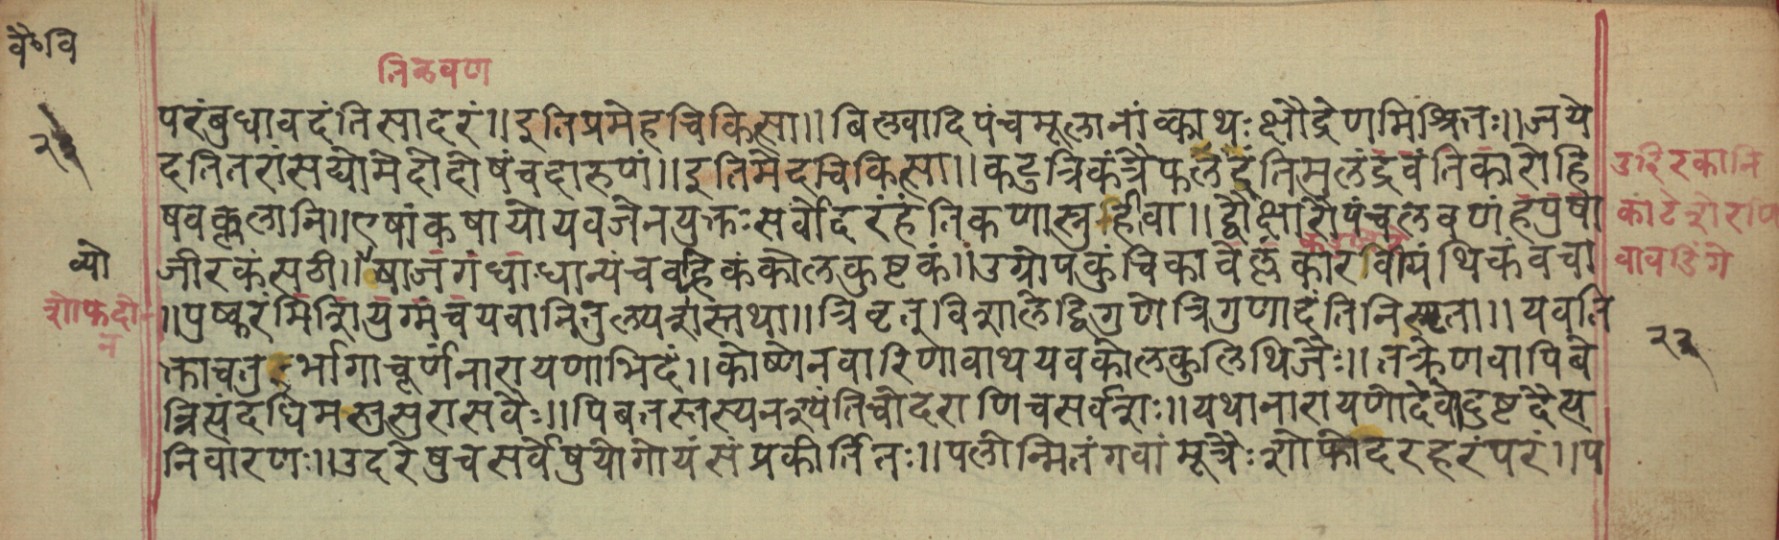 वै॰वि
तिलवण
परंबुधावदंतिसादरं॥इतिप्रमेहचिकित्सा॥बिल्वादिपंचमूलानांक्वाथःक्षौद्रेणमिश्रितः॥जये
२३
दतितरांसद्योमेदोदोषंचदारुणं॥इतिमेदचिकित्सा॥कटुत्रिकंत्रैफलदंतिमूलंद्रवंतिकारोहि
षवल्कलानि॥एषांकषायोयवजेनयुक्तःसर्वोदरंहंतिकणास्नुहीवा॥द्वौक्षारौपंचलवणंहपुषा
जीरकंसठी॥षाजगंधाधान्यंचवह्निकंकोलकुष्टकं॥उग्रोपकुंचिकावेल्लकारवीग्रंथिकंवचा
॥पुष्करंमिशियुग्मंचयवानितुल्यशस्तथा॥त्रिवृतुविशालेद्विगुणेत्रिगुणादंतिनिस्मृता॥यवति
क्ताचतुर्भागाचूर्णंनारायणाभिदं॥कोष्णेनवारिणावाथयवकोलकुलिथिजैः॥तक्रेणवापिबे
न्नित्यंदधिमस्तुसुरासवैः॥पिबतस्तस्यनश्यंतिचोदराणिचसर्वशः॥यथानारायणोदेवोदुष्टदैत्य
निवारणः॥उदरेषुचसर्वेषुयोगोयंसंप्रकीर्तितः॥पलोन्मितंगवांमूत्रैःशोफोदरहरंपरं॥प
व्यो
२३